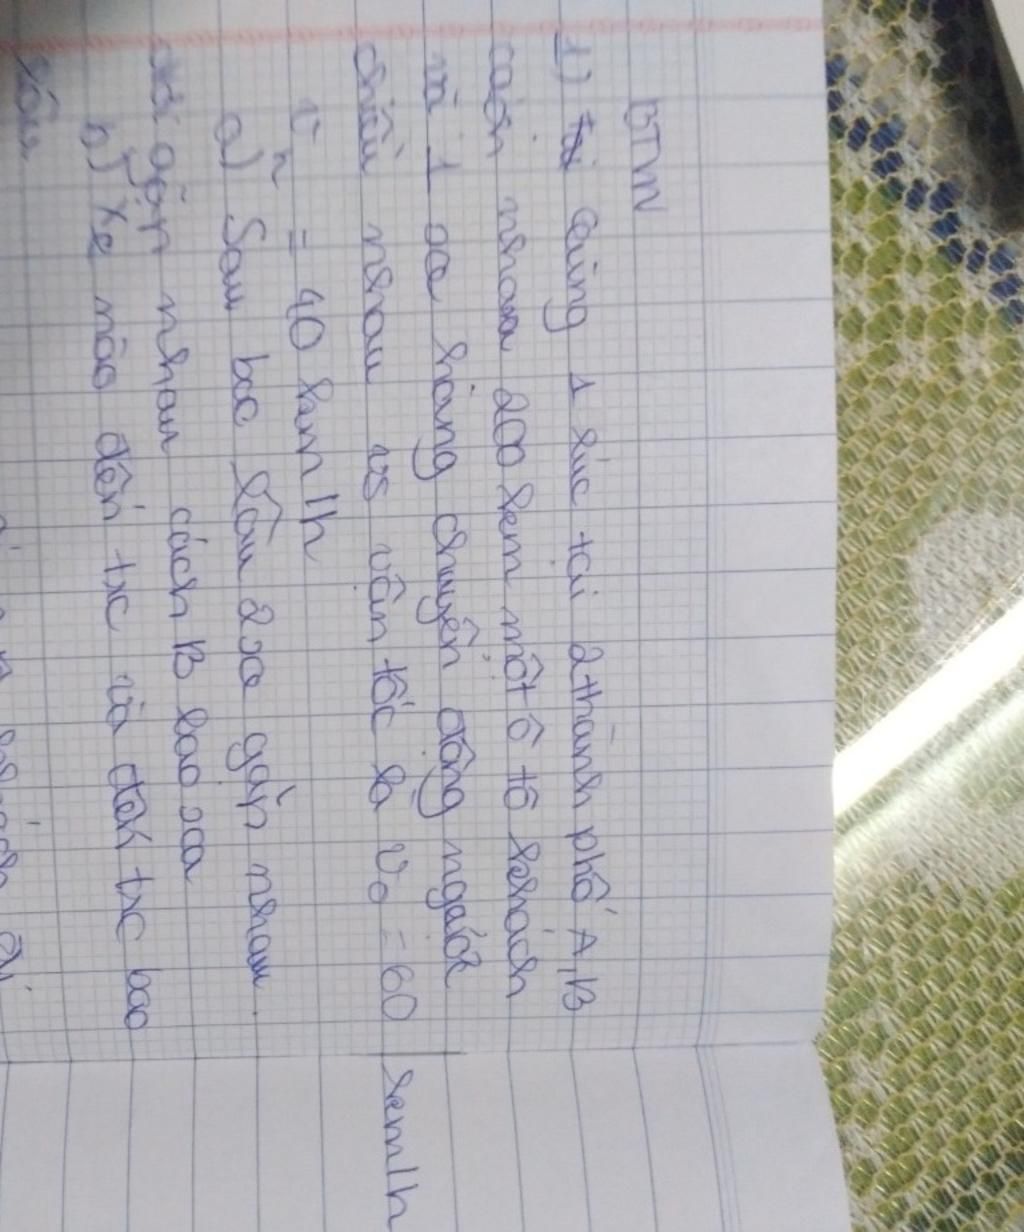 BTVN
1) Cùng 1 lúc tại 2 thành phố A, B
cách nhau 200 km một ô tô khách
và 1 xe hàng chuyển động ngược
chiều nhau vs vận tốc là v₀ = 60 km/h
vₕ = 40 km/h
a) Sau bao lâu 2 xe gặp nhau
chỗ gặp nhau cách B bao xa
b) Xe nào đến trc và đến trc bao
lâu